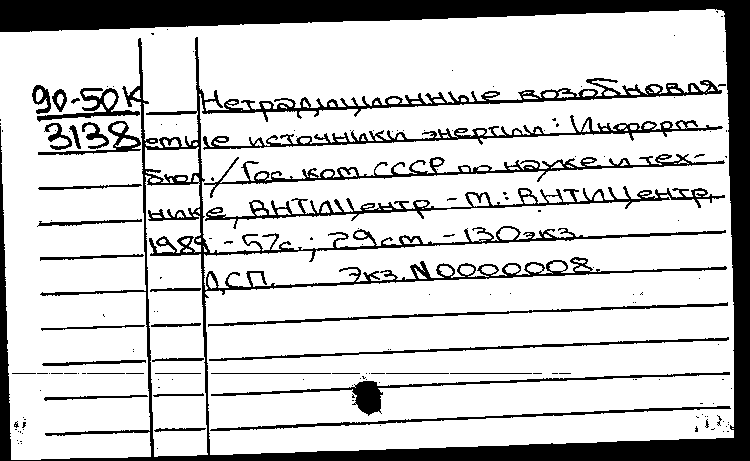 90-50К Нетрадиционные возобновля-
3138 емые источники энергии: Информ.
бюл. / Гос. ком. СССР по науке и тех-
нике, ВНТИЦентр. - М.: ВНТИЦентр,
1989. - 57с.; 29см. - 130экз.
ДСП. Экз. N0000008.